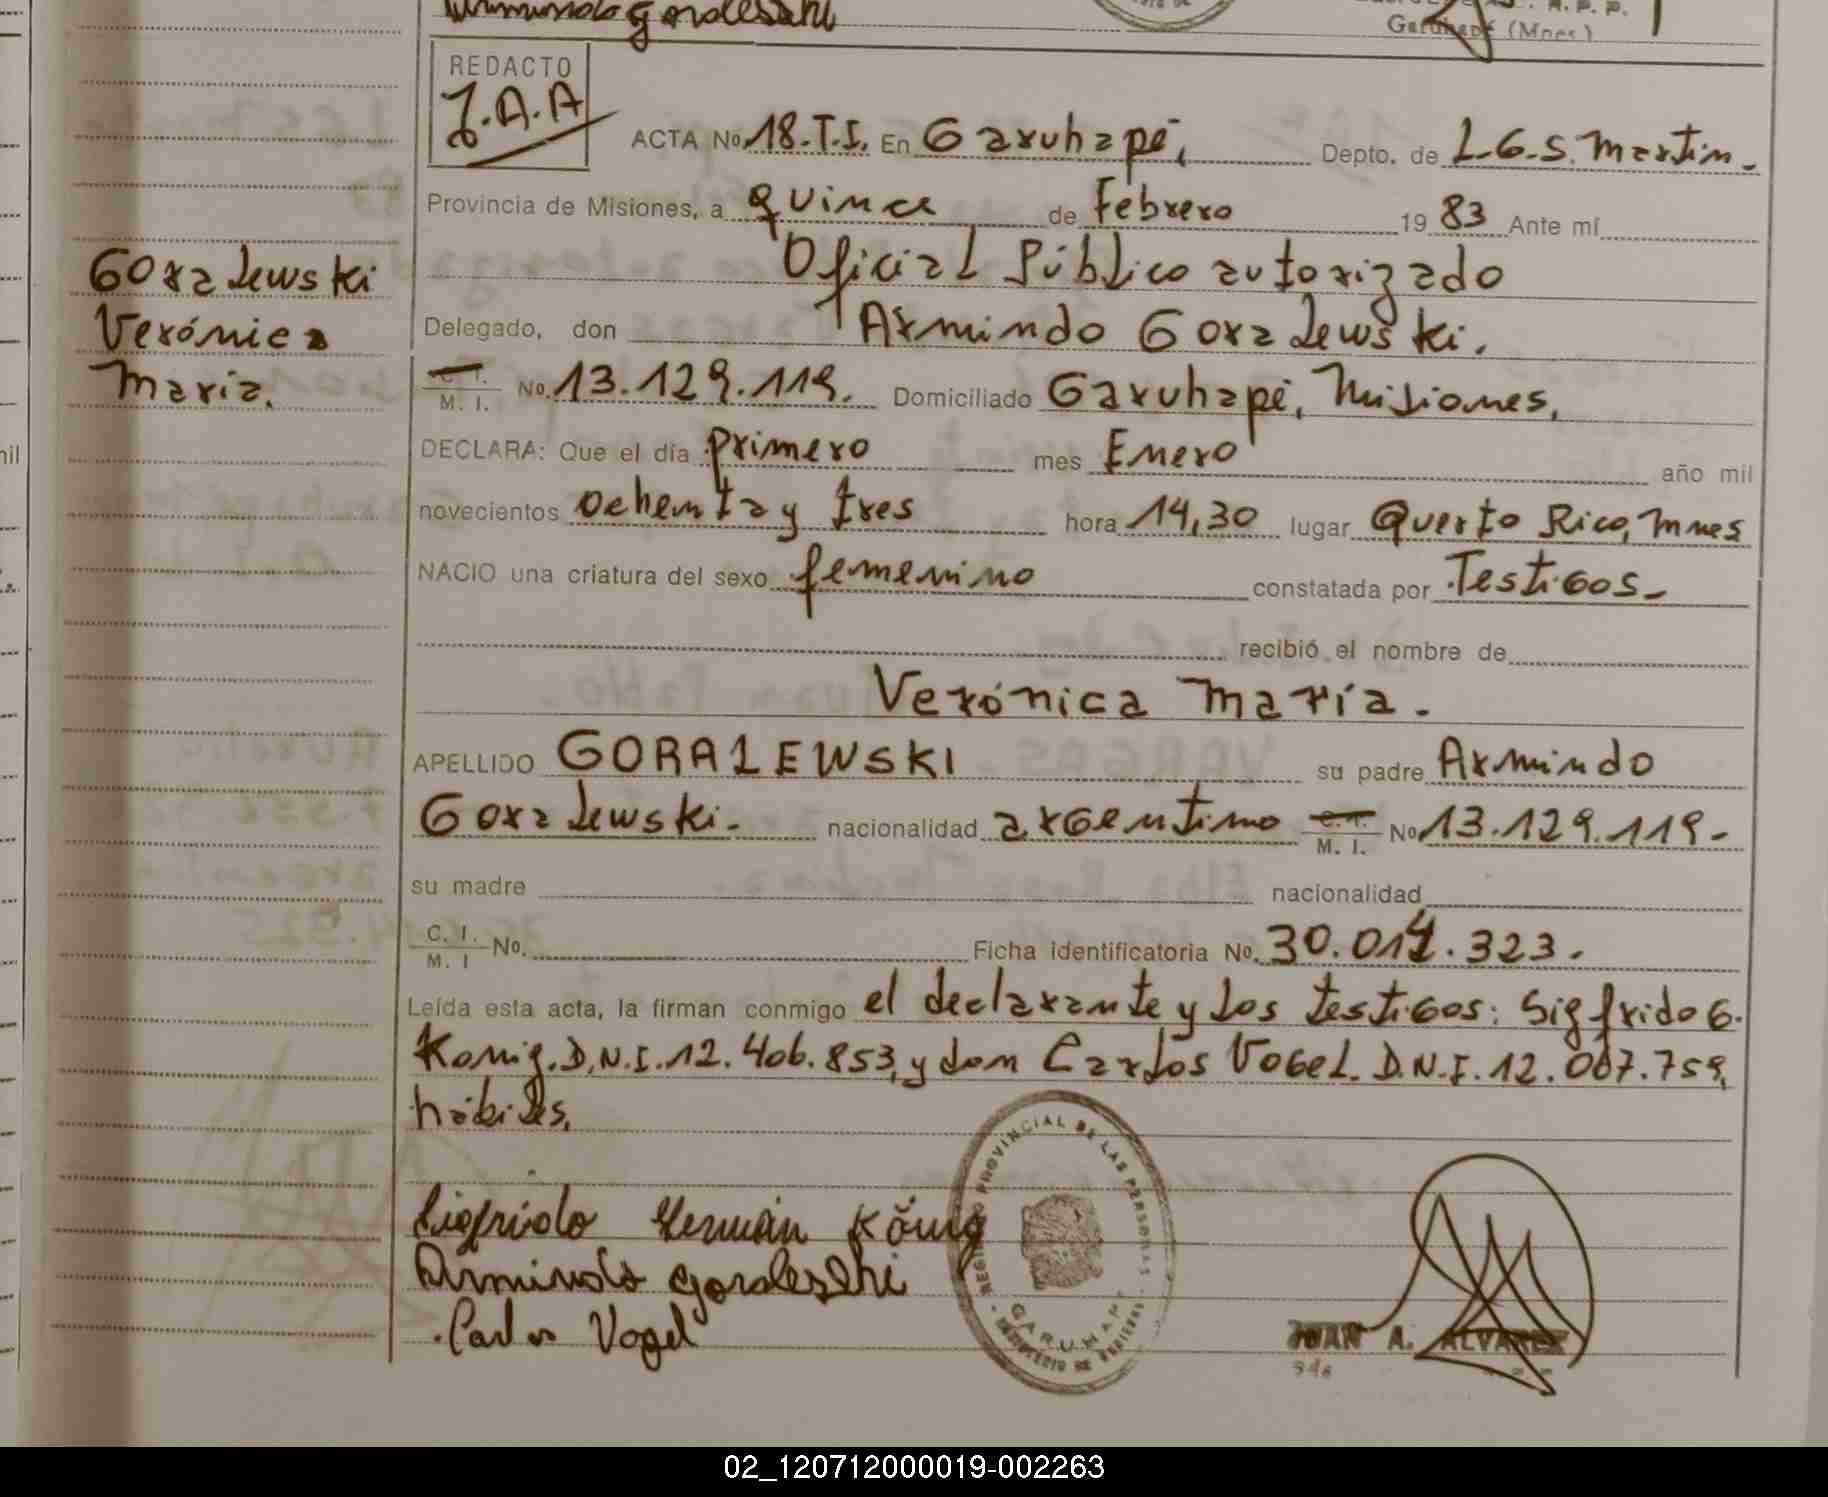 REDACTO
J.A.A
ACTA No. 18.T.I. En Garuhapé, Depto. de L.G.S. Martin.
Provincia de Misiones, a quince de Febrero 19 83 Ante mí
Oficial Público autorizado
Goralewski
Verónica
María.
Delegado, don Armindo Goralewski.
C. I. M. I. No. 13.129.119. Domiciliado Garuhapé, Misiones,
DECLARA: Que el día primero mes Enero año mil
novecientos ochenta y tres hora 14,30 lugar Puerto Rico, Mnes
NACIO una criatura del sexo femenino constatada por Testigos.
recibió el nombre de
Verónica María.
APELLIDO GORALEWSKI su padre Armindo
Goralewski. nacionalidad argentino C. I. M. I. No 13.129.119.
su madre nacionalidad
C. I. M. I No. Ficha identificatoria No. 30.014.323.
Leída esta acta, la firman conmigo el declarante y los testigos: Sigfrido G.
Konig. D.N.I. 12.406.853, y don Carlos Vogel. D.N.I. 12.067.759,
hábiles.
Sigfrido Hermán König
Armindo Goraleski
Carlos Vogel
REGISTRO PROVINCIAL DE LAS PERSONAS
GARUHAPE
MINISTERIO DE GOBIERNO
JUAN A. ALVAREZ
Garuhapé (Mnes.)
02_120712000019-002263